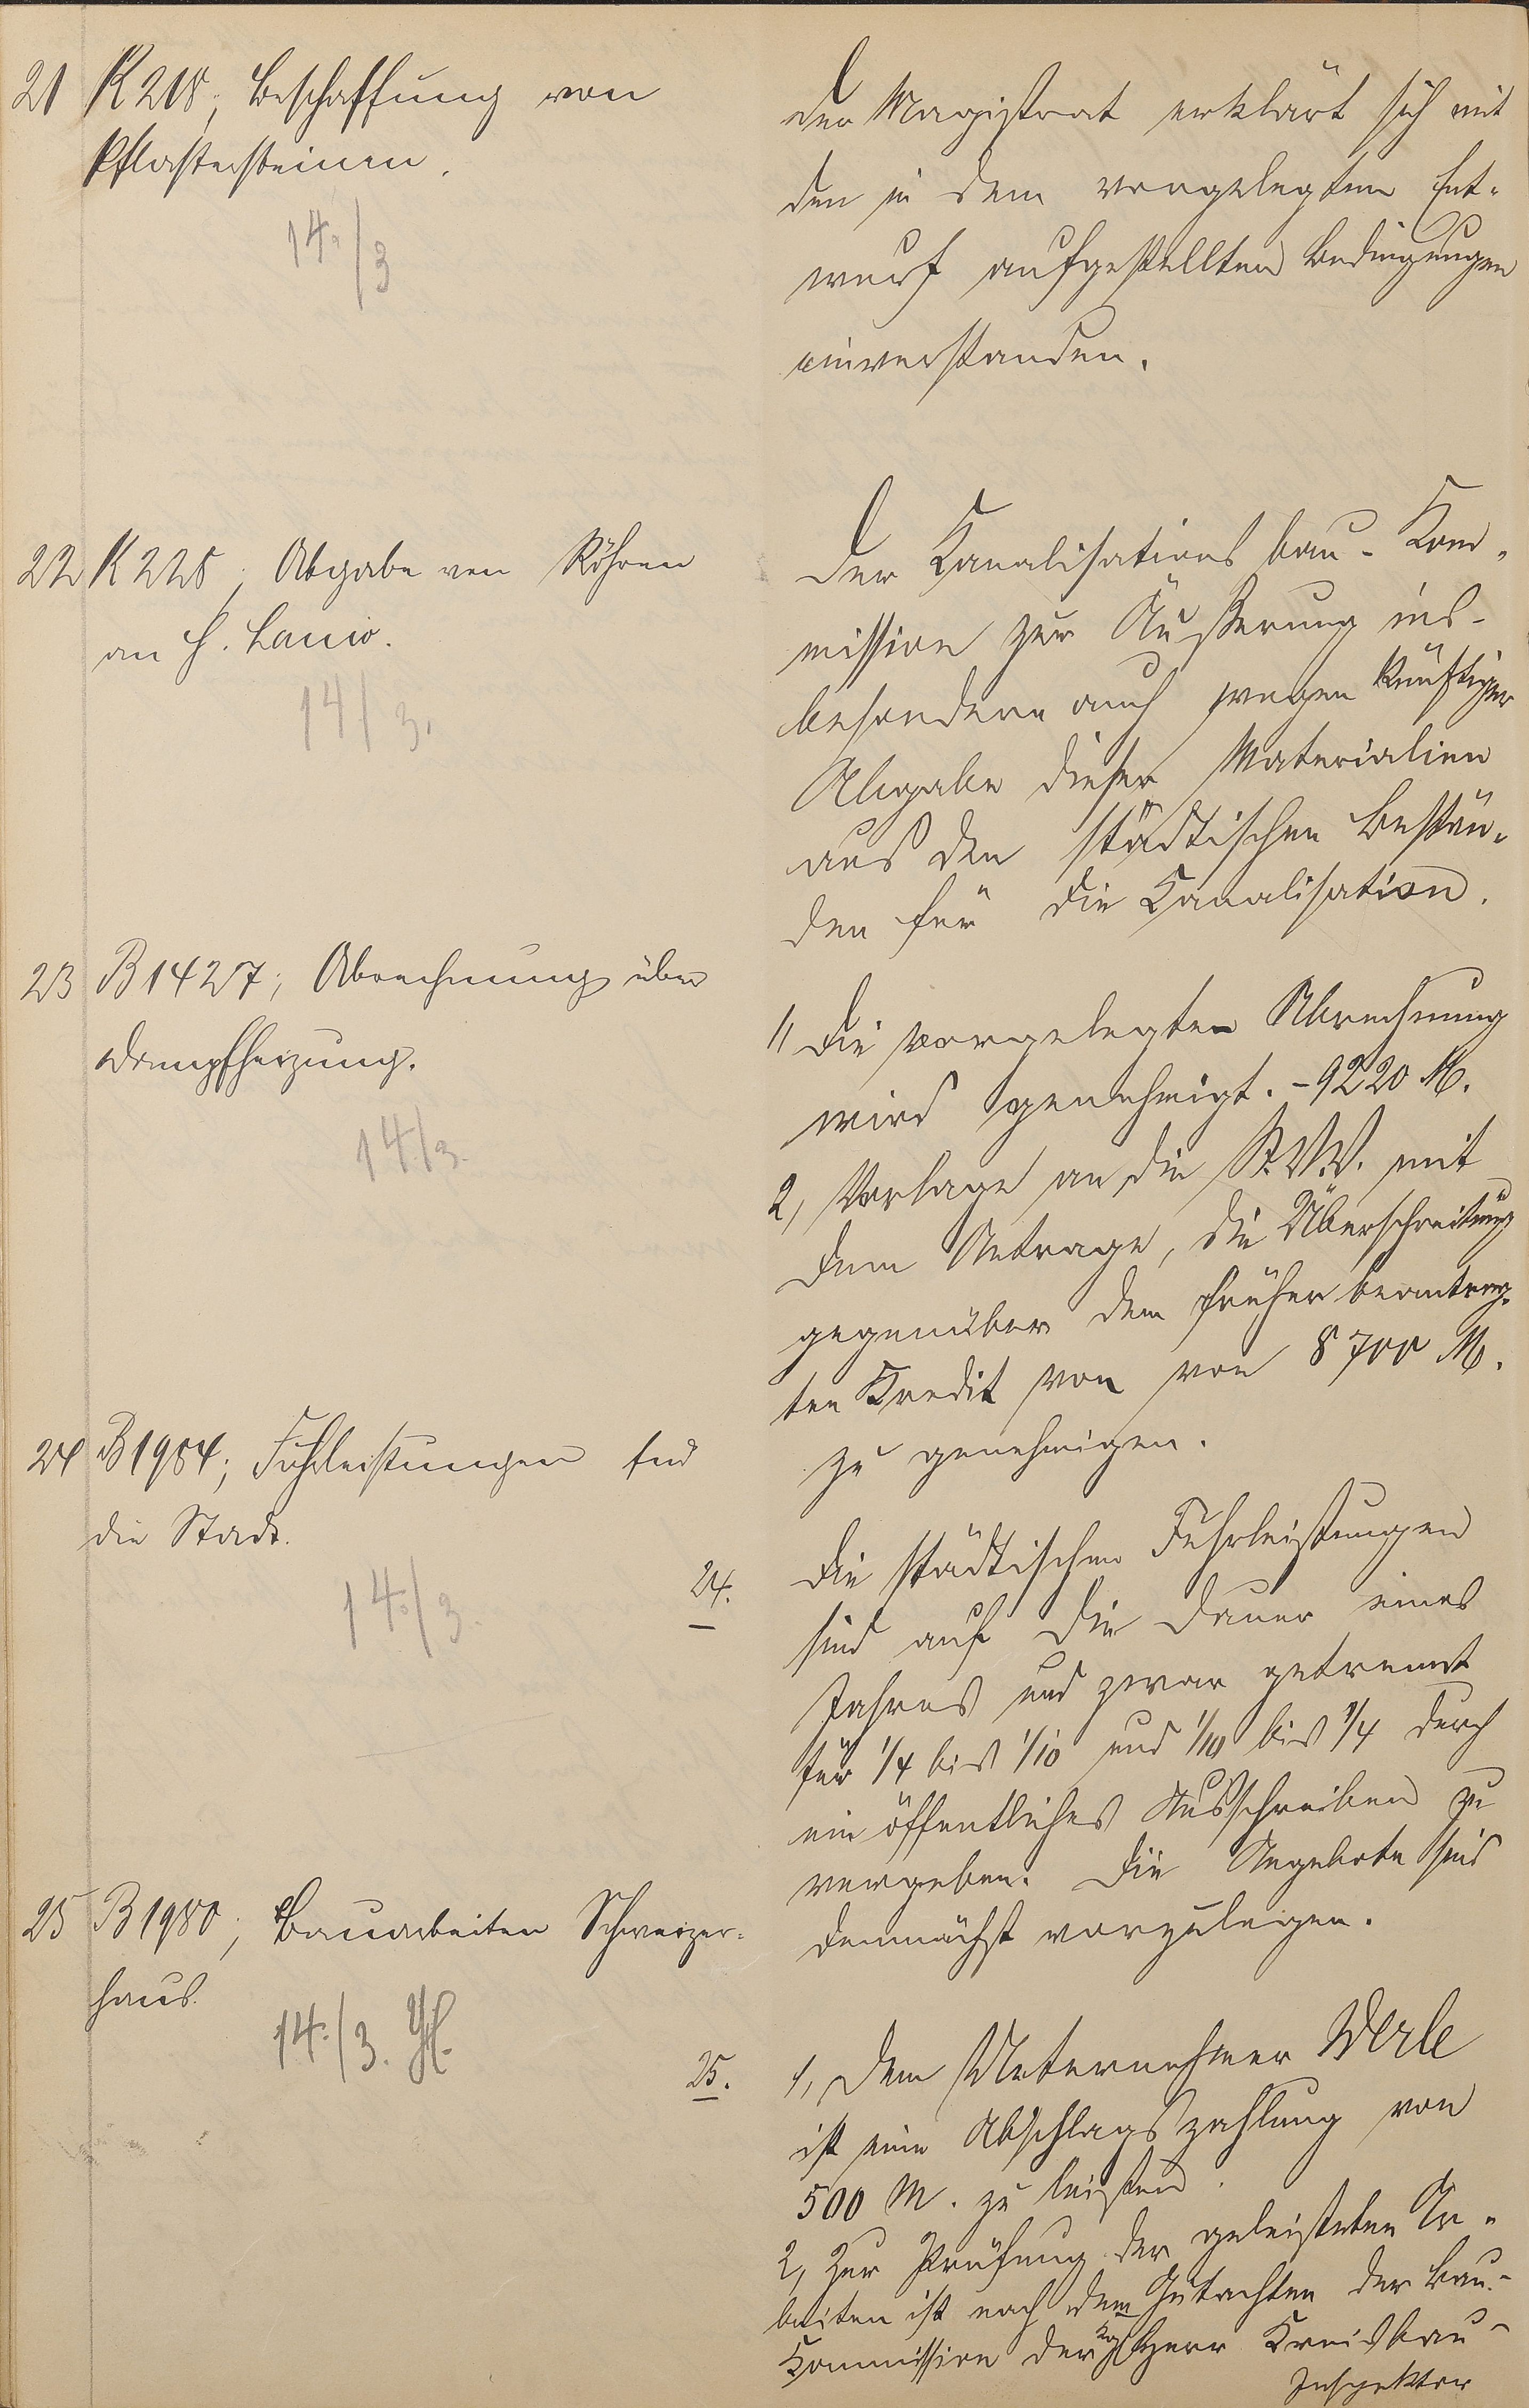 21 K 218; Beschaffung von
Pflastersteinen.
14./3
Der Magistrat erklärt sich mit
den in dem vorgelegten Ent-
wurf aufgestellten Bedingungen
einverstanden.
22 K 225; Abgabe von Röhren
an H. Lanio.
14/3.
Der Kanalisationsbau-Kom-
mission zur Äußerung ins-
besondere auch wegen künftiger
Abgabe dieser Materialien
aus den städtischen Bestän-
den für die Kanalisation.
23 B 1427; Abrechnung über
Dampfheizung.
14./3.
1, Die vorgelegten Abrechnung
wird genehmigt. - 9220 M.
2, Vorlage an die St.V.V. mit
dem Antrage, die Überschreitung
gegenüber dem früher beantrag-
ten Kredit von von 8700 M.
zu genehmigen.
24 B 1984; Fuhrleistungen für
die Stadt.
14./3.
24. Die städtischen Fuhrleistungen
sind auf die Dauer eines
Jahres und zwar getrennt
für 1/4 bis 1/10 und 1/10 bis 1/4 durch
ein öffentliches Ausschreiben zu
vergeben. Die Angebote sind
demnächst vorzulegen.
25 B 1980; Bauarbeiten Schweizer-
haus.
14./3.
25. 1, Dem Unternehmer Werle
ist eine Abschlagszahlung von
500 M. zu leisten.
2, Zur Prüfung der geleisteten Ar-
beiten ist nach dem Gutachten der Bau-
Kommission der Kgl Herr Kreisbau-
Inspektor